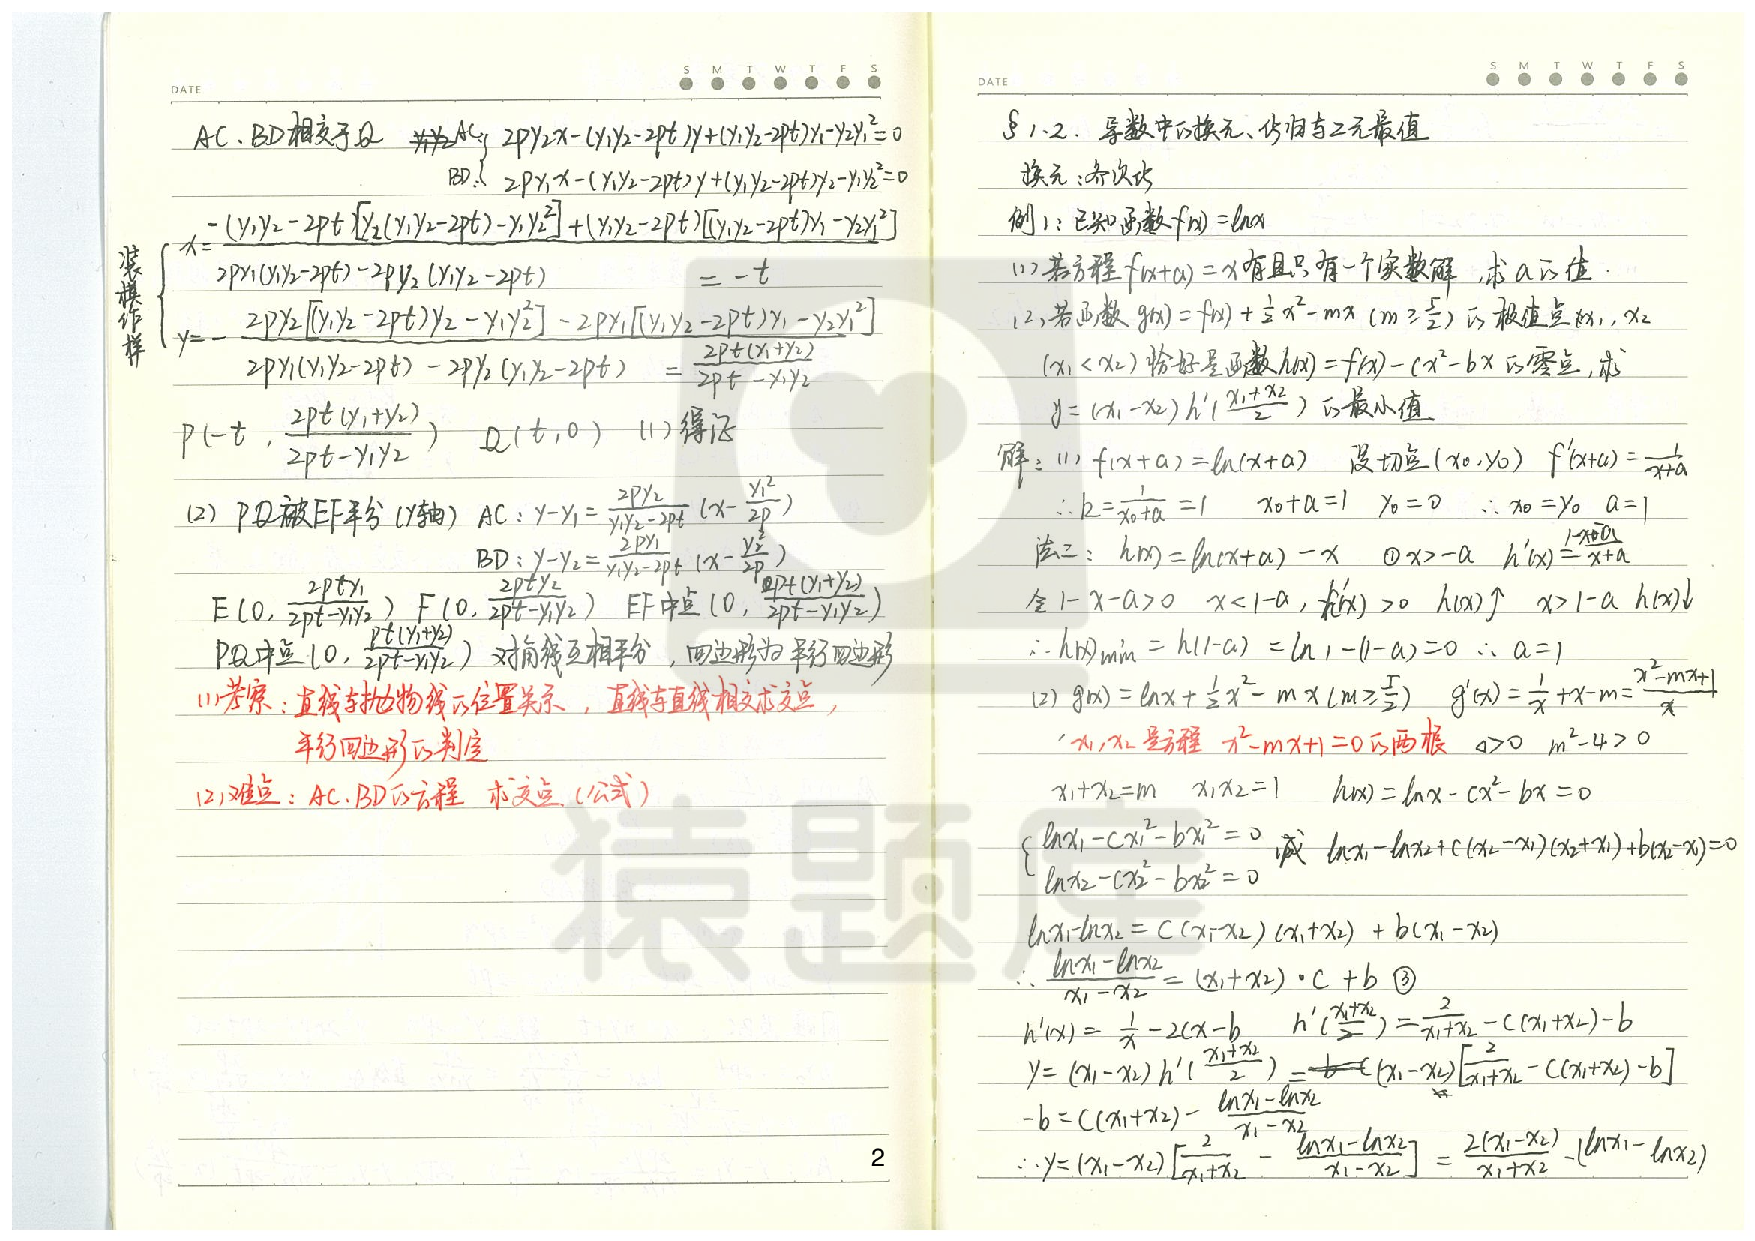 DATE
S M T W T F S
AC、BD相交于Q AC: 2py₂x-(y₁y₂-2pt)y+(y₁y₂-2pt)y₁-y₂y₁²=0
BD: 2py₁x-(y₁y₂-2pt)y+(y₁y₂-2pt)y₂-y₁y₂²=0
装模作样
x= -(y₁y₂-2pt)[y₂(y₁y₂-2pt)-y₁y₂²]+(y₁y₂-2pt)[(y₁y₂-2pt)y₁-y₂y₁²]
2py₁(y₁y₂-2pt)-2py₂(y₁y₂-2pt) = -t
y=- 2py₂[(y₁y₂-2pt)y₂-y₁y₂²]-2py₁[(y₁y₂-2pt)y₁-y₂y₁²]
2py₁(y₁y₂-2pt)-2py₂(y₁y₂-2pt) = 2pt(y₁+y₂)/(2pt-y₁y₂)
P(-t, 2pt(y₁+y₂)/(2pt-y₁y₂)) Q(t,0) (1)得证
(2) PQ被EF平分(y轴) AC: y-y₁=2py₂/(y₁y₂-2pt)(x-y₁²/2p)
BD: y-y₂=2py₁/(y₁y₂-2pt)(x-y₂²/2p)
E(0, 2pty₁/(2pt-y₁y₂)) F(0, 2pty₂/(2pt-y₁y₂)) EF中点(0, pt(y₁+y₂)/(2pt-y₁y₂))
PQ中点(0, pt(y₁+y₂)/(2pt-y₁y₂)) 对角线互相平分,四边形为平行四边形
(1)考察:直线与抛物线的位置关系,直线与直线相交求交点,
平行四边形的判定
(2)难点:AC、BD的方程 求交点(公式)
2
DATE
S M T W T F S
§1.2. 导数中的换元、化归与二元最值
换元:齐次化
例1:已知函数f(x)=lnx
(1)若方程f(x+a)=x有且只有一个实数解,求a的值.
(2)若函数g(x)=f(x)+½x²-mx(m≥5/2)的极值点x₁,x₂
(x₁<x₂)恰好是函数h(x)=f(x)-cx²-bx的零点,求
y=(x₁-x₂)h'((x₁+x₂)/2)的最小值
解:(1) f(x+a)=ln(x+a) 设切点(x₀,y₀) f'(x+a)=1/(x+a)
∴k=1/(x₀+a)=1 x₀+a=1 y₀=0 ∴x₀=y₀ a=1
法二:h(x)=ln(x+a)-x ①x>-a h'(x)=(1-x-a)/(x+a)
令1-x-a>0 x<1-a, h'(x)>0 h(x)↑ x>1-a h(x)↓
∴h(x)min=h(1-a)=ln1-(1-a)=0 ∴a=1
(2) g(x)=lnx+½x²-mx(m≥5/2) g'(x)=1/x+x-m=(x²-mx+1)/x
x₁,x₂是方程 x²-mx+1=0的两根 Δ>0 m²-4>0
x₁+x₂=m x₁x₂=1 h(x)=lnx-cx²-bx=0
{ lnx₁-cx₁²-bx₁²=0 减 lnx₁-lnx₂+c(x₂-x₁)(x₂+x₁)+b(x₂-x₁)=0
lnx₂-cx₂²-bx₂²=0
lnx₁-lnx₂=c(x₁-x₂)(x₁+x₂)+b(x₁-x₂)
∴(lnx₁-lnx₂)/(x₁-x₂)=(x₁+x₂)·c+b ③
h'(x)=1/x-2cx-b h'((x₁+x₂)/2)=2/(x₁+x₂)-c(x₁+x₂)-b
y=(x₁-x₂)h'((x₁+x₂)/2)=(x₁-x₂)[2/(x₁+x₂)-c(x₁+x₂)-b]
-b=c(x₁+x₂)-(lnx₁-lnx₂)/(x₁-x₂)
∴y=(x₁-x₂)[2/(x₁+x₂)-(lnx₁-lnx₂)/(x₁-x₂)]=2(x₁-x₂)/(x₁+x₂)-(lnx₁-lnx₂)
猿题库